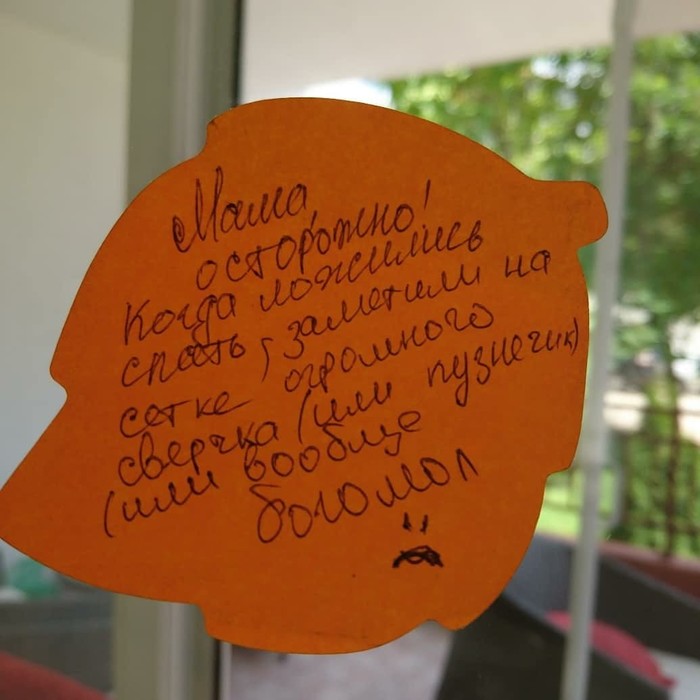 Мама,
осторожно!
Когда ложились
спать, заметили на
сетке огромного
сверчка (или пузнечик)
(или вообще
богомол